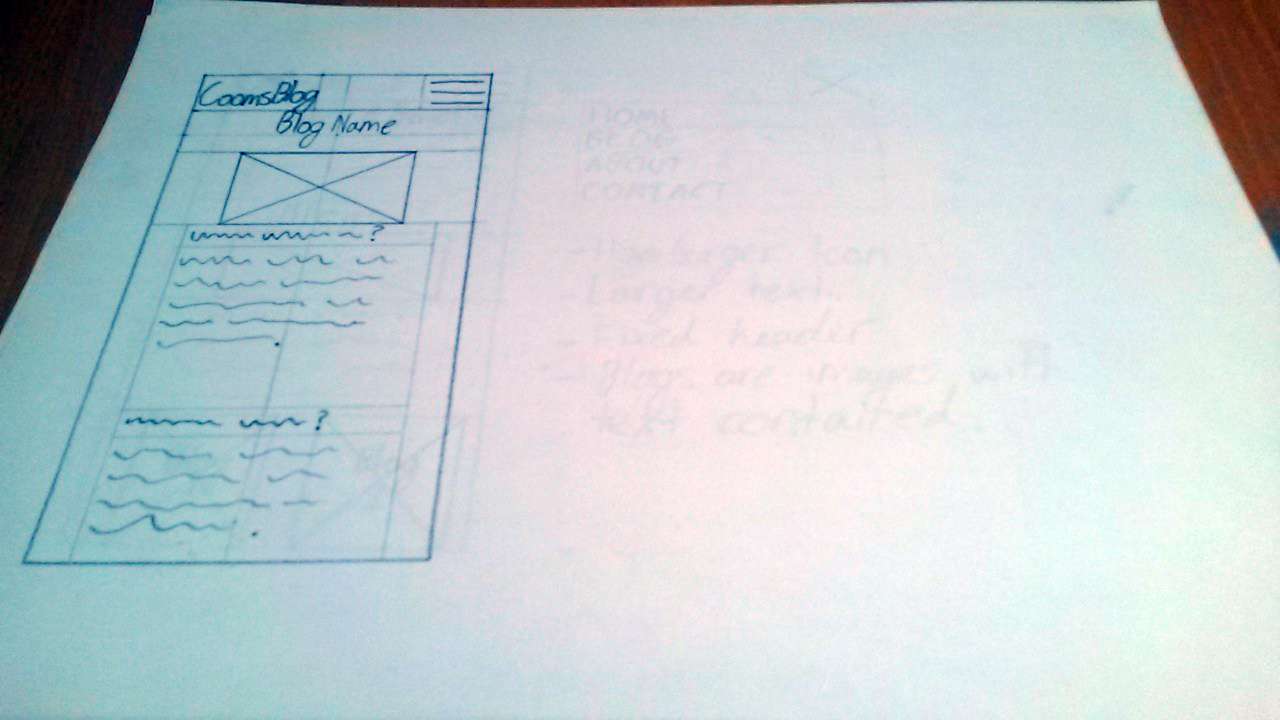 CoomsBlog
Blog Name
HOME
BLOG
ABOUT
CONTACT
- Hamburger icon
- Larger text.
- Fixed header
- Blogs are images with
text contained.